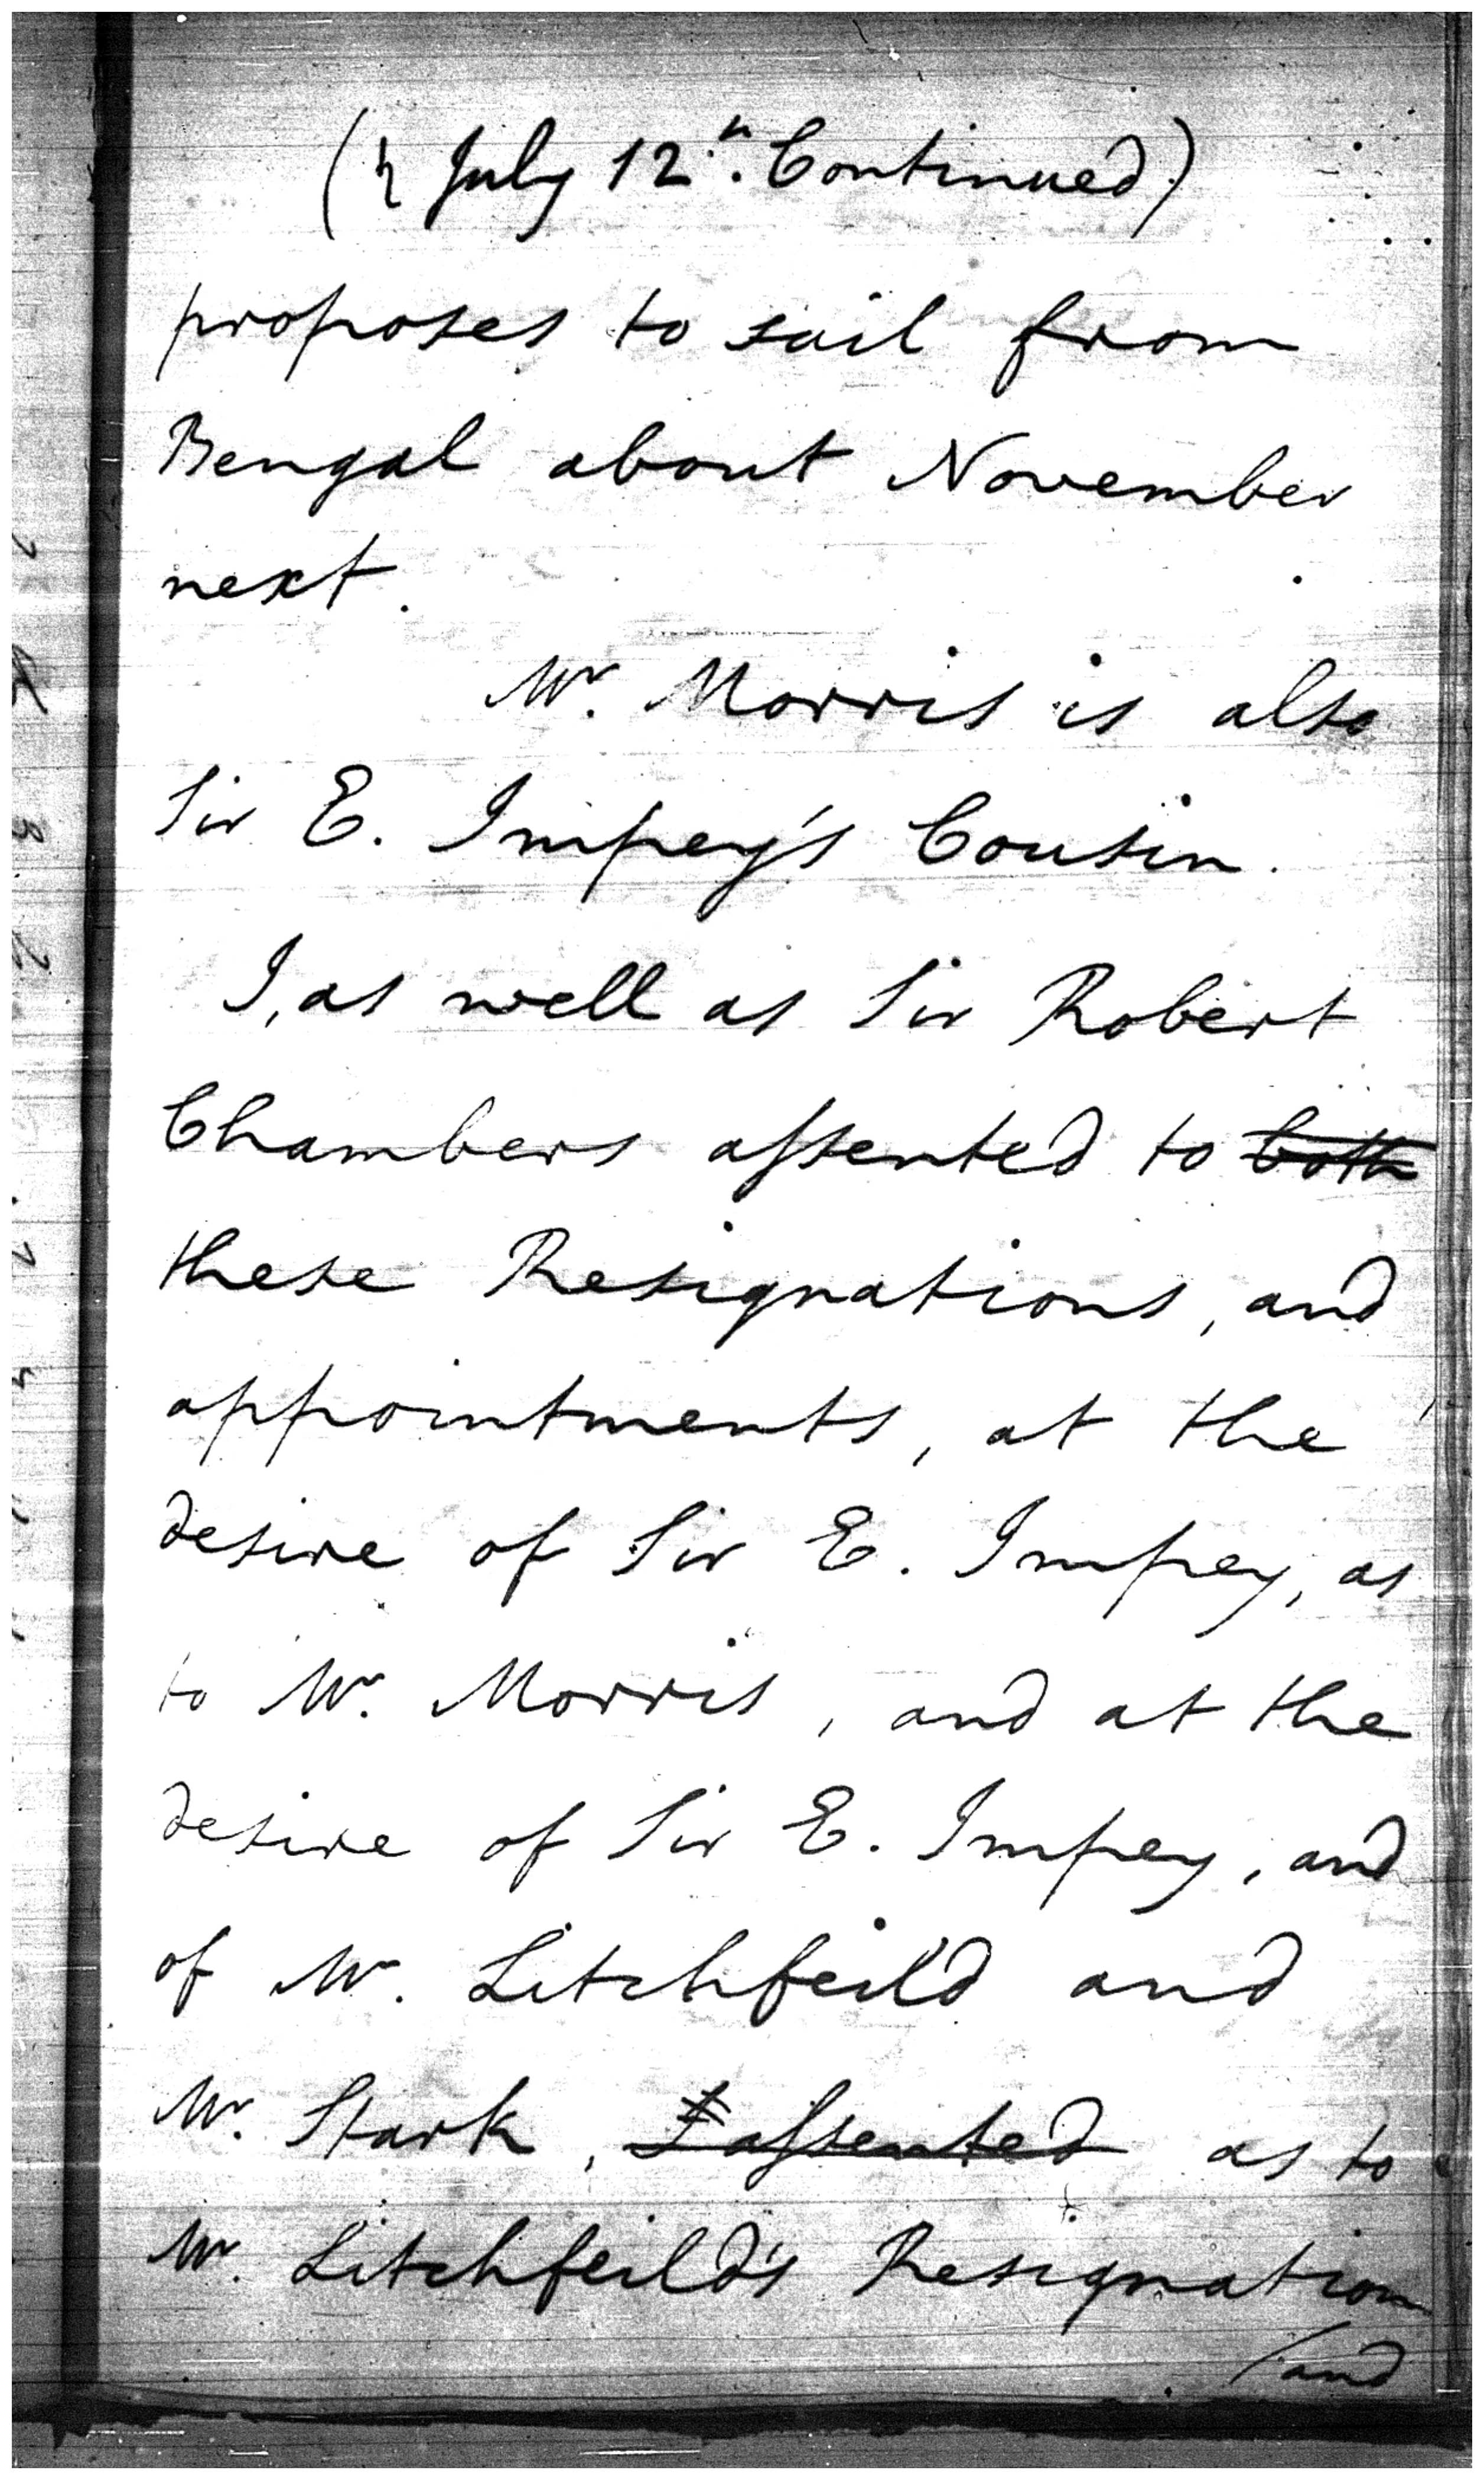 (♄ July 12th. Continued)
proposes to sail from
Bengal about November
next.
Mr. Morris is also
Sir E. Impey's Cousin.
I, as well as Sir Robert
Chambers aſsented to ~~both~~
these Resignations, and
appointments, at the
desire of Sir E. Impey, as
to Mr. Morris, and at the
desire of Sir E. Impey, and
of Mr. Litchfeild and
Mr. Stark, ~~I aſsented~~ as to
Mr. Litchfeild's Resignation
/and